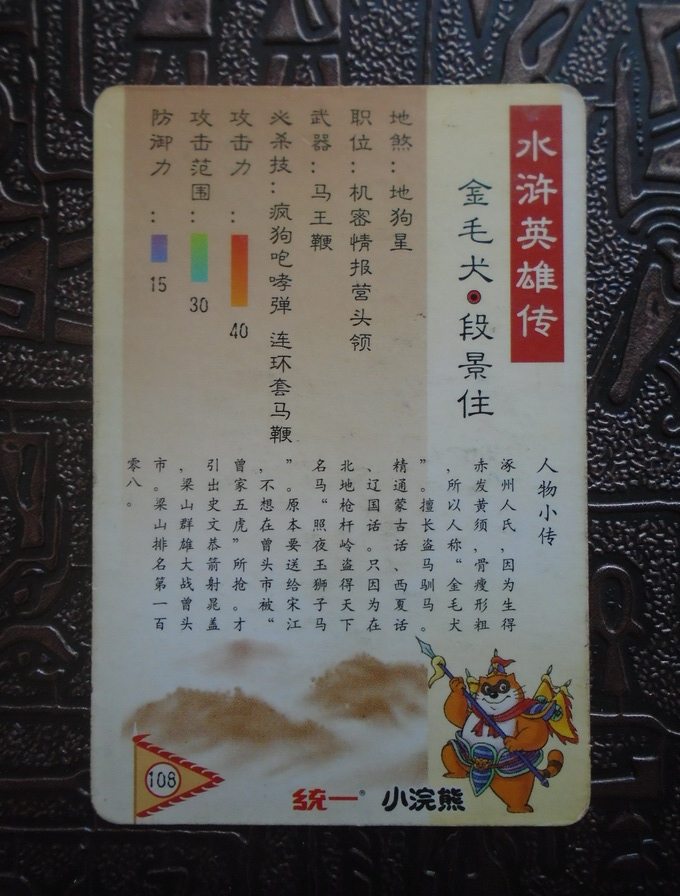 水浒英雄传
金毛犬·段景住
地煞：地狗星
职位：机密情报营头领
武器：马王鞭
必杀技：疯狗咆哮弹 连环套马鞭
攻击力：40
攻击范围：30
防御力：15
人物小传
涿州人氏,因为生得
赤发黄须,骨瘦形粗
,所以人称“金毛犬
”。擅长盗马驯马。
精通蒙古话、西夏话
、辽国话。只因为在
北地枪杆岭盗得天下
名马“照夜玉狮子马
”。原本要送给宋江
,不想在曾头市被“
曾家五虎”所抢。才
引出史文恭箭射晁盖
,梁山群雄大战曾头
市。梁山排名第一百
零八。
108
统一® 小浣熊